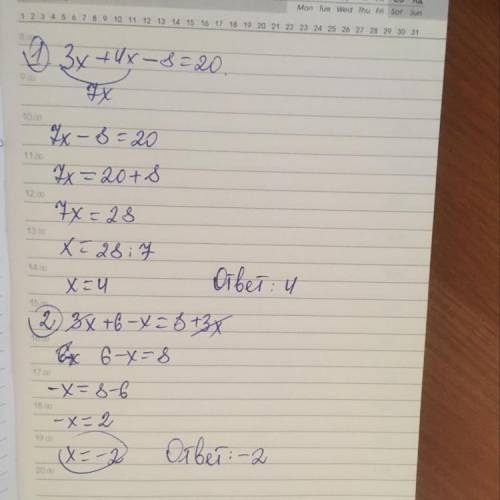 Mon Tue Wed Thu Fri Sat Sun
1 2 3 4 5 6 7 8 9 10 11 12 13 14 15 16 17 18 19 20 21 22 23 24 25 26 27 28 29 30 31
1) 3x+4x-8=20.
9.00
7x
10.00
7x-8=20
11.00
7x=20+8
12.00
7x=28
13.00
x=28:7
14.00
x=4 Ответ: 4
15.00
2) 3x+6-x=8+3x
6-x=8
17.00
-x=8-6
18.00
-x=2
19.00
x=-2 Ответ: -2
20.00